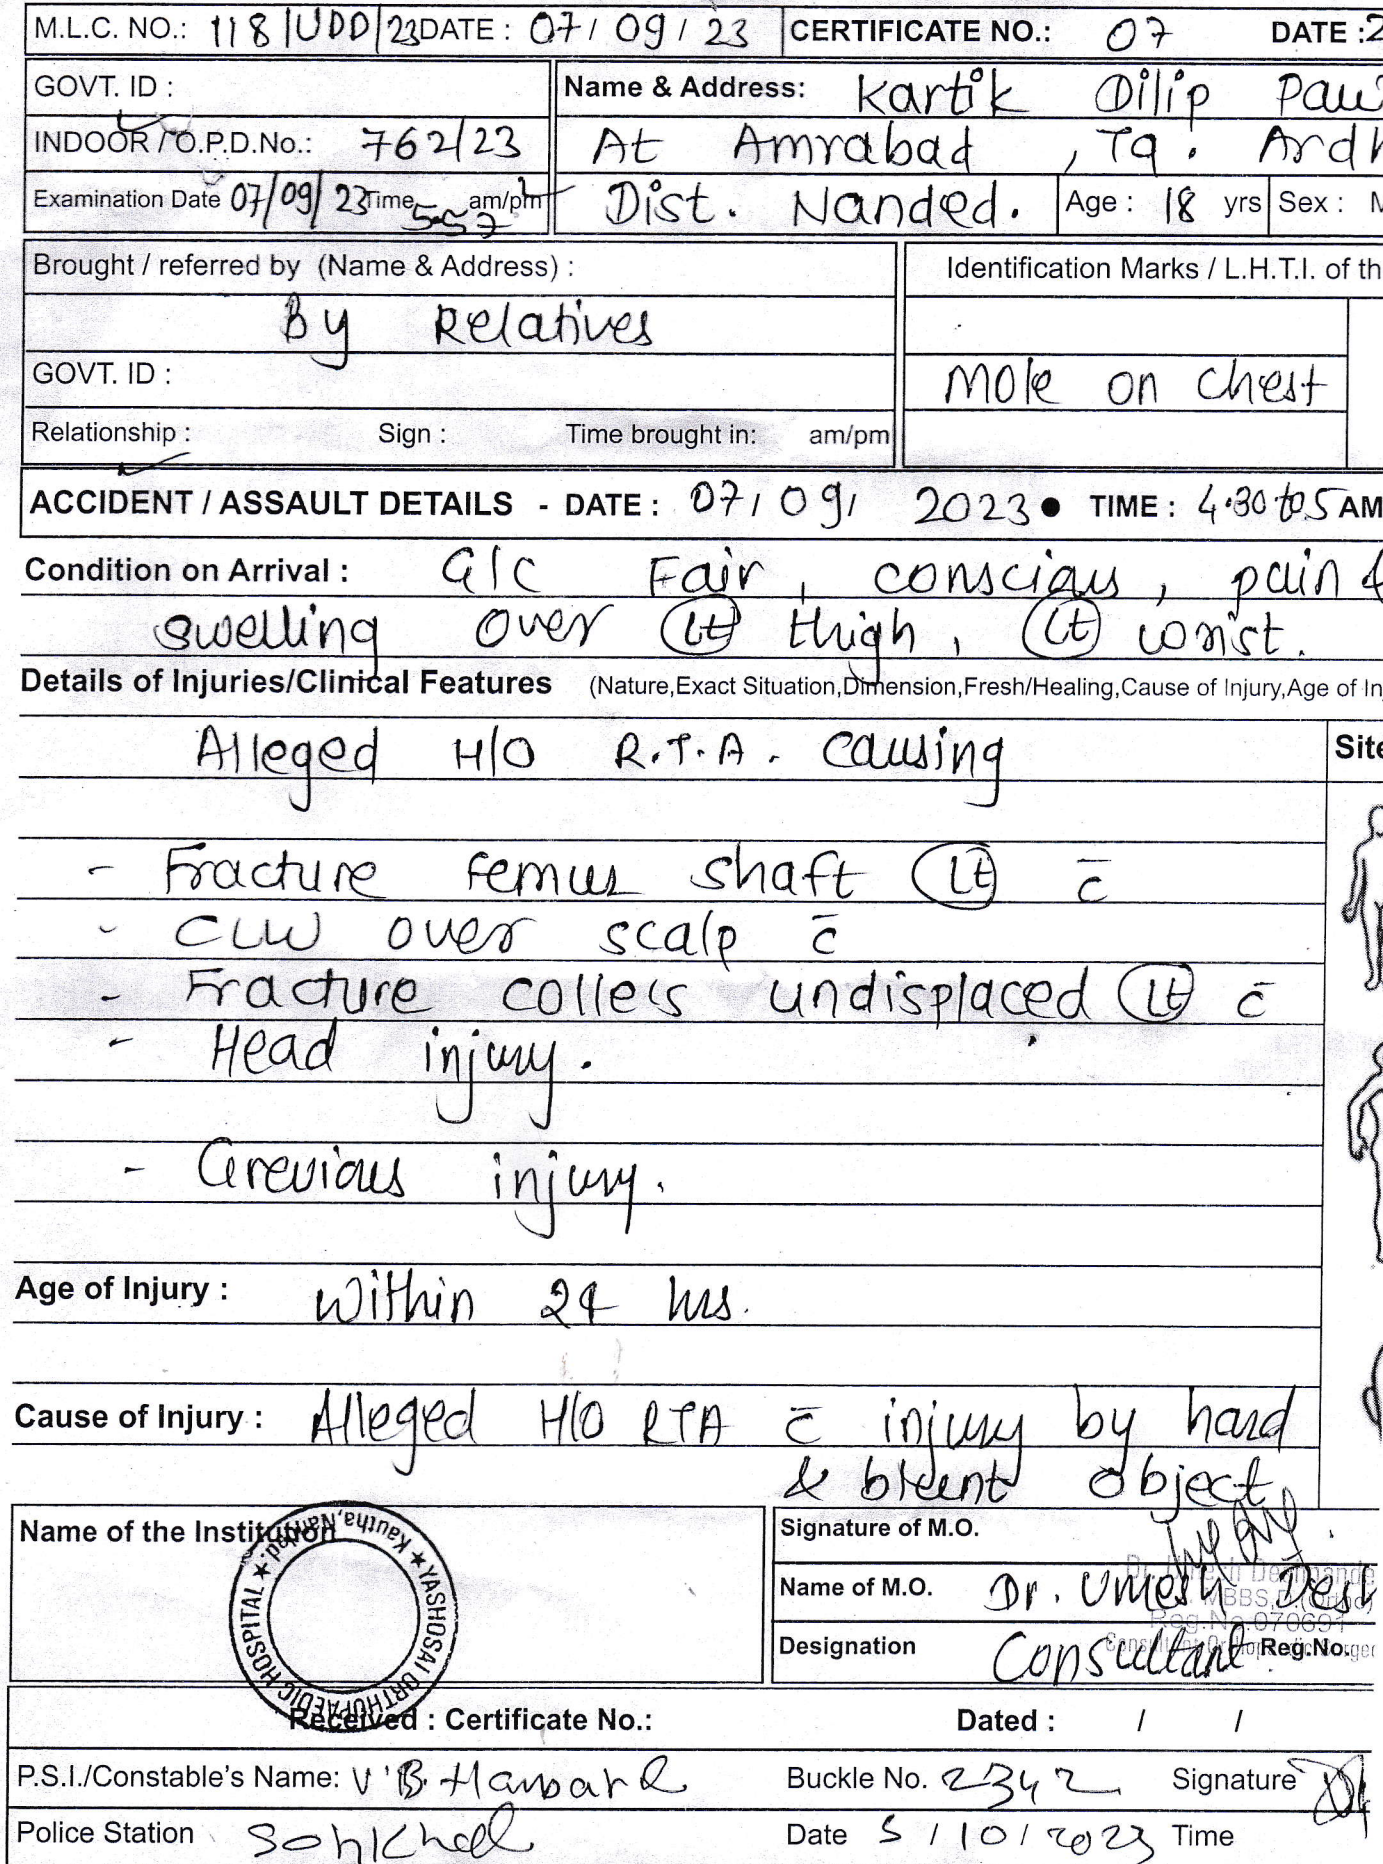 M.L.C. NO.: 118/UDD/23 DATE : 07 / 09 / 23 CERTIFICATE NO.: 07 DATE :2
GOVT. ID :
Name & Address: Kartik Dilip
INDOOR / O.P.D.No.: 762/23
At Amrabad , Tq. Ardh
Examination Date 07/09/23 Time 5-57 am/pm
Dist. Nanded. Age : 18 yrs Sex : M
Brought / referred by (Name & Address) :
By Relatives
GOVT. ID :
Relationship : Sign : Time brought in: am/pm
Identification Marks / L.H.T.I. of th
Mole on chest
ACCIDENT / ASSAULT DETAILS - DATE : 07 / 09 / 2023 ● TIME : 4.30 to 5 AM
Condition on Arrival : G/C Fair , conscious , pain &
swelling over Lt thigh , Lt wrist.
Details of Injuries/Clinical Features (Nature,Exact Situation,Dimension,Fresh/Healing,Cause of Injury,Age of In
Site
Alleged H/O R.T.A. causing
- Fracture femur shaft Lt c̄
- CLW over scalp c̄
- Fracture colles undisplaced Lt c̄
- Head injury.
- Grevious injury.
Age of Injury : Within 24 hrs.
Cause of Injury : Alleged H/O RTA c̄ injury by hard
& blunt object
Name of the Institution
YASHOSAI ORTHOPAEDIC HOSPITAL ★ Kautha, Nanded. ★
Signature of M.O.
Name of M.O. Dr. Umesh Desh
Dr. Umesh Deshmande
MBBS,D.(Ortho)
Reg.No.070691
Designation Consultant Reg.No.
Received : Certificate No.: Dated : / /
P.S.I./Constable's Name: V.B. Buckle No. 2342 Signature
Police Station Sonkhed Date 5 / 10 / 2023 Time